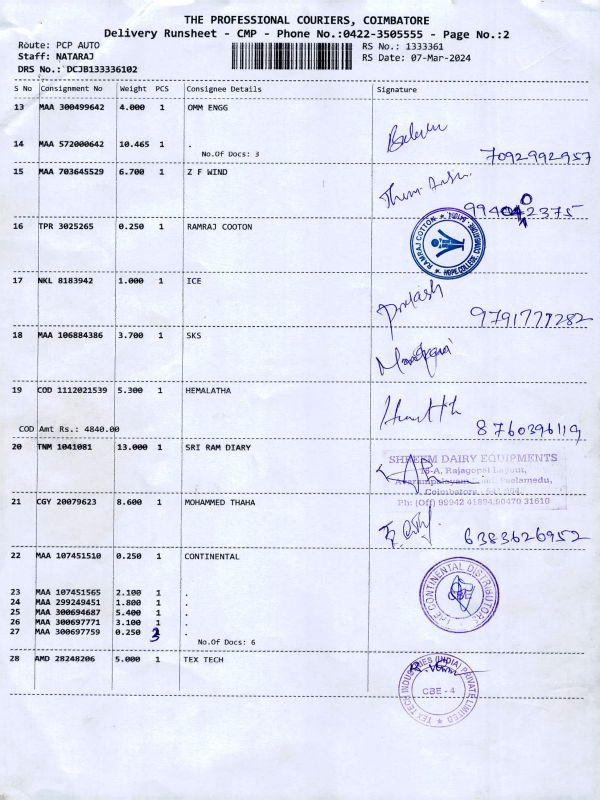 THE PROFESSIONAL COURIERS, COIMBATORE
Delivery Runsheet - CMP - Phone No.:0422-3505555 - Page No.:2
Route: PCP AUTO
Staff: NATARAJ
DRS No.: DCJB133336102
RS No.: 1333361
RS Date: 07-Mar-2024
S No Consignment No Weight PCS Consignee Details Signature
13 MAA 300499642 4.000 1 OMM ENGG
14 MAA 572000642 10.465 1 .
No.Of Docs: 3
7092992957
15 MAA 703645529 6.700 1 Z F WIND
16 TPR 3025265 0.250 1 RAMRAJ COOTON
RAMRAJ COTTON
HOPE COLLEGE
17 NKL 8183942 1.000 1 ICE
Prakash 9791777282
18 MAA 106884386 3.700 1 SKS
19 COD 1112021539 5.300 1 HEMALATHA
8760396119
COD Amt Rs.: 4840.00
20 TNM 1041081 13.000 1 SRI RAM DIARY
SHREEM DAIRY EQUIPMENTS
Rajagopal Layout,
Peelamedu,
Coimbatore
Ph: (Off) 99942 41894,90470 31610
21 CGY 20079623 8.600 1 MOHAMMED THAHA
6383626952
22 MAA 107451510 0.250 1 CONTINENTAL
THE CONTINENTAL DISTRIBUTORS
CBE
23 MAA 107451565 2.100 1 .
24 MAA 299249451 1.800 1 .
25 MAA 300694687 5.400 1 .
26 MAA 300697771 3.100 1 .
27 MAA 300697759 0.250 3 .
No.Of Docs: 6
28 AMD 28248206 5.000 1 TEX TECH
TEX TECH INDUSTRIES (INDIA) PRIVATE LIMITED
CBE - 4